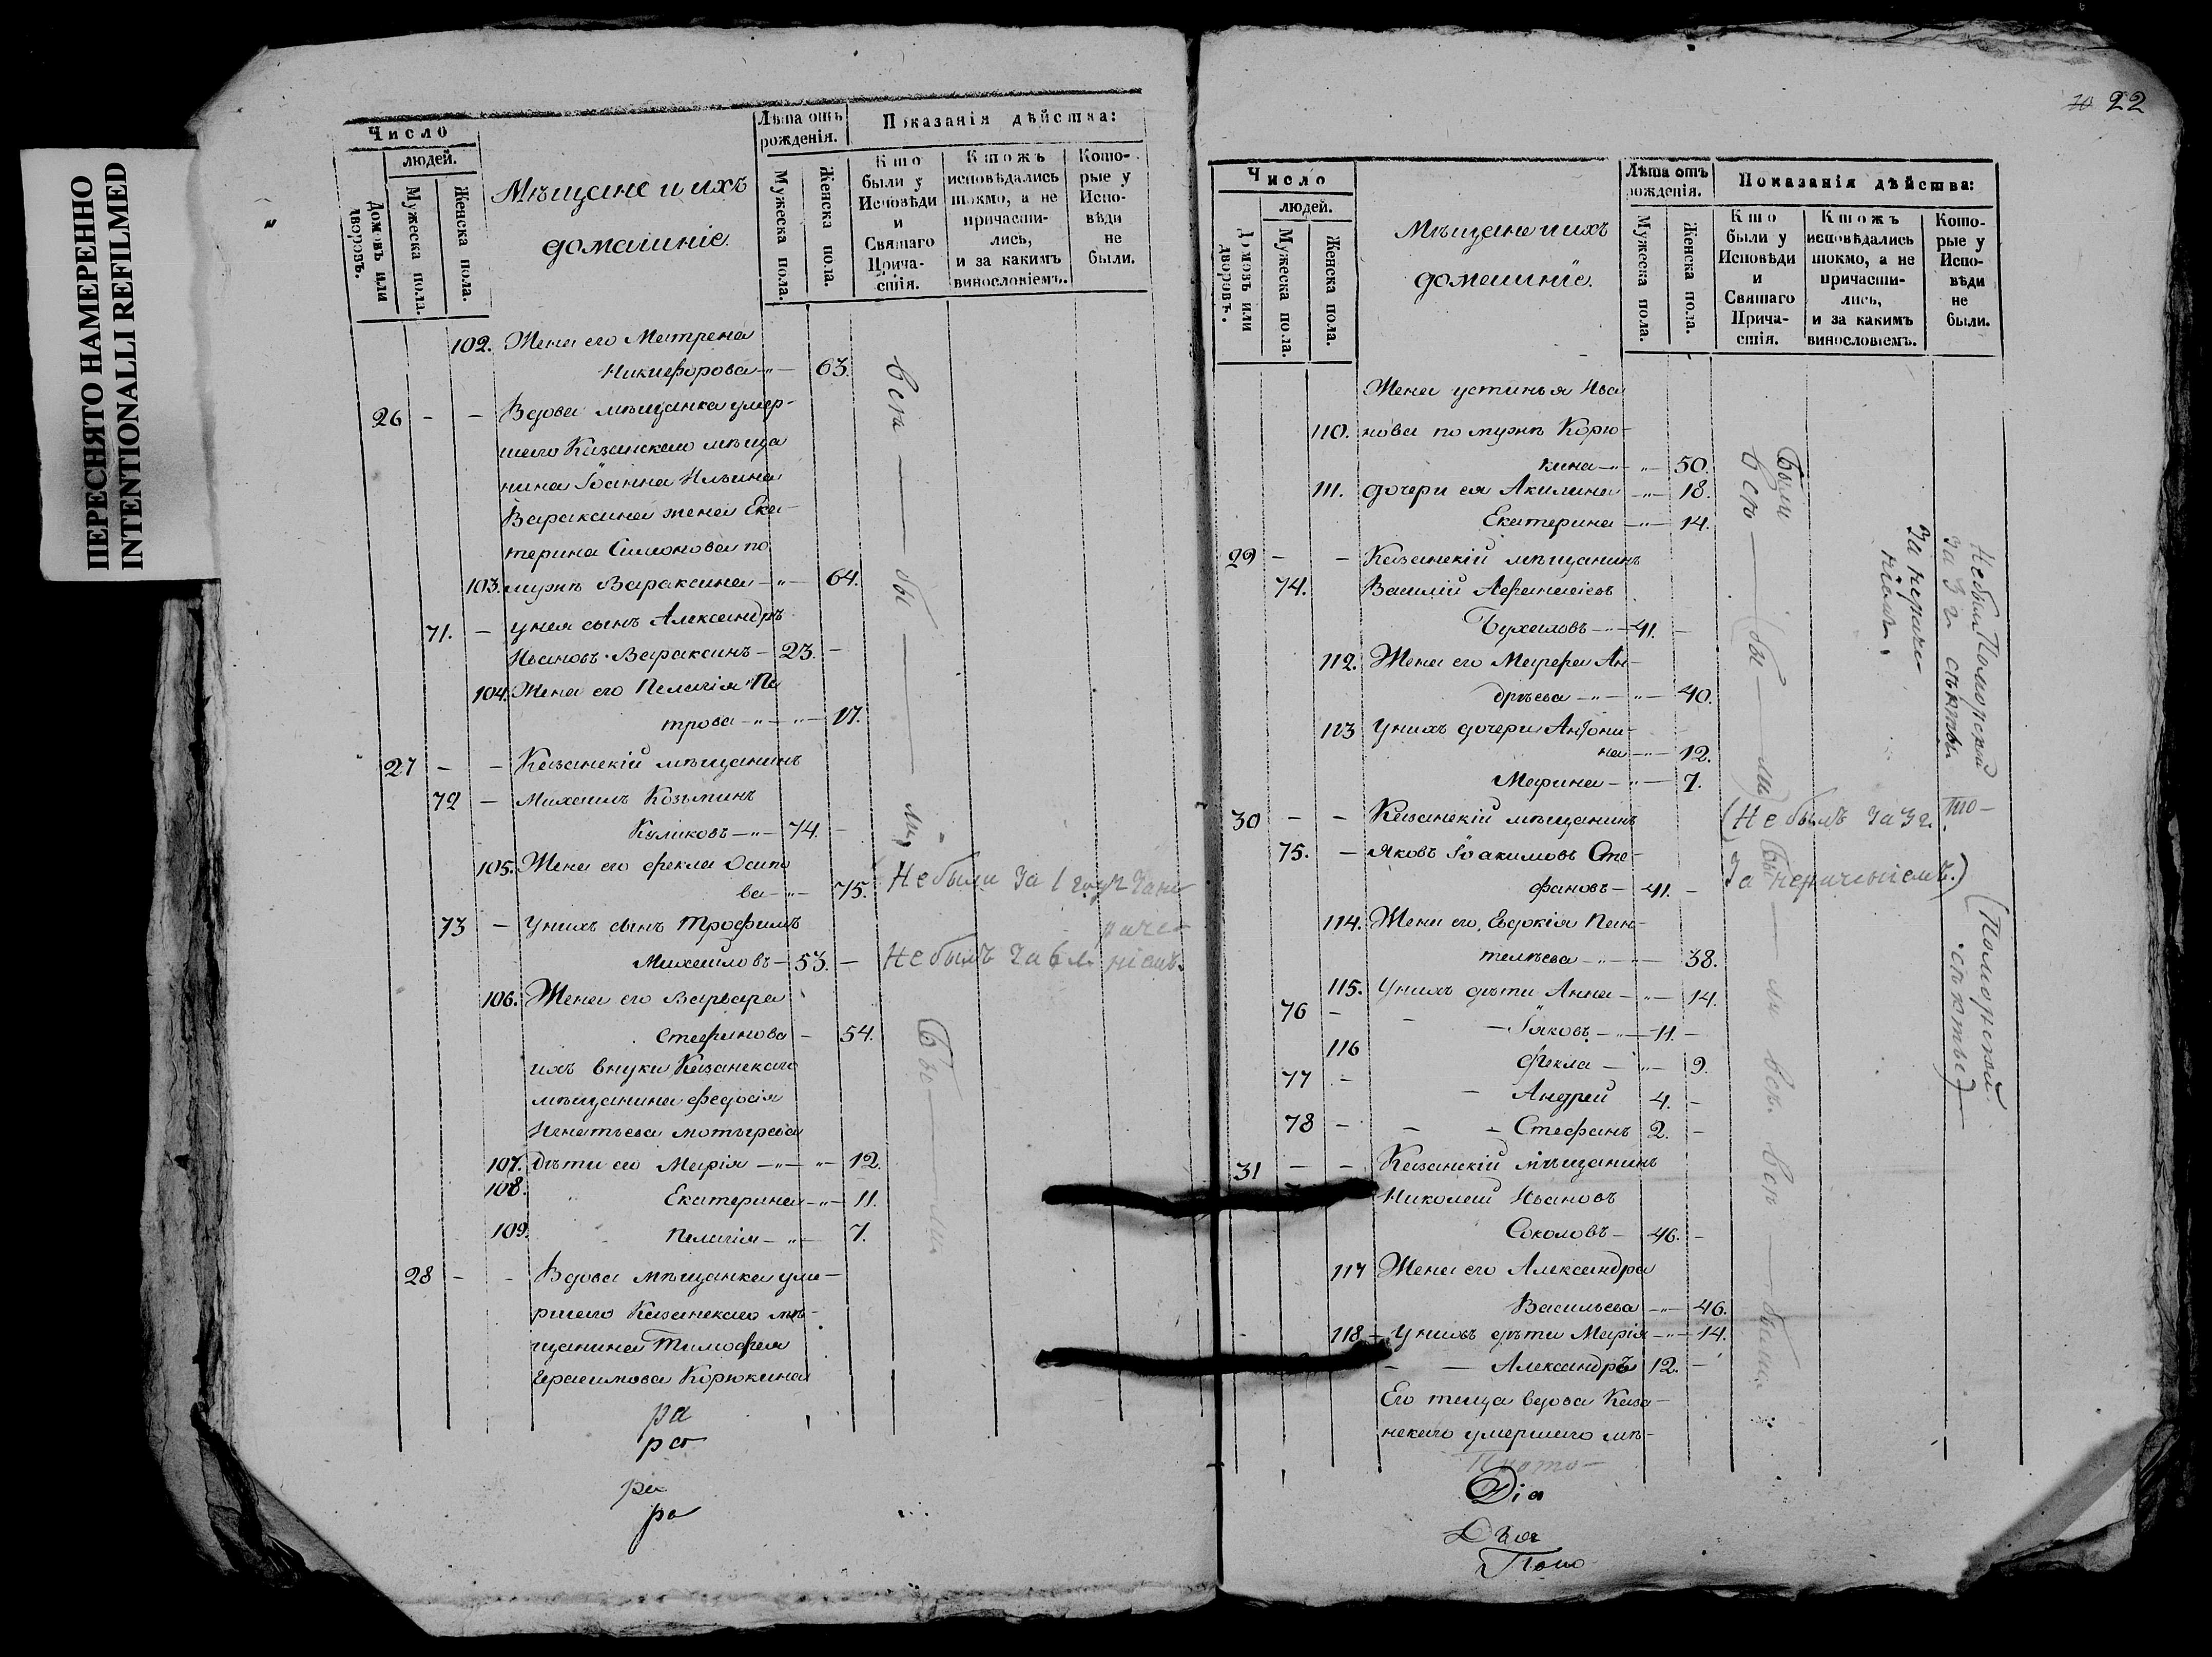 ПЕРЕСНЯТО НАМЕРЕННО
INTENTIONALLI REFILMED
Число
людей.
Домовъ или дворовъ.
Мужеска пола.
Женска пола.
Мѣщане и ихъ
домашніе.
Лѣта отъ рожденія.
Мужеска пола.
Женска пола.
Показанія дѣйства:
Кто были у Исповѣди и Святаго Прича-стія.
Ктожъ исповѣдались токмо, а не причасти-лись, и за какимъ винословіемъ.
Кото-рые у Испо-вѣди не были.
102. Жена его Матрена
Никифорова -"- 63.
26 - - Вдова мѣщанка умер-
шего Казанскаго мѣща
нина Іоанна Ильина
Вараксина жена Ека-
терина Симонова по
103. мужѣ Вараксина -"- 64.
71. - у нея сынъ Александръ
Ивановъ Вараксинъ - 23. -
104. Жена его Пелагія Пе
трова -"- -"- 17.
всѣ — бы — ли
27 - - Казанскій мѣщанинъ
72 - Михаилъ Козьминъ
Куликовъ -"- 74. -
105. Жена его Фекла Осипо
ва -"- 75. Не были за 1 годъ за не
73 - У нихъ сынъ Трофимъ
раче-
Михаиловъ - 53. - Не былъ за 6 л. ніемъ.
106. Жена его Варвара
Стефанова - 54.
ихъ внуки Казанскаго
мѣщанина Федосія
Игнатьева Мотырева
107. дѣти его Марія -"- -"- 12.
108. " Екатерина -"- 11.
109. Пелагія -"- 7.
Бы — ли
28 - - Вдова мѣщанка уме-
ршего Казанскаго мѣ-
щанина Тимофея
Герасимова Корюкина
ра
ра
ра
ра
10 22
Число
людей.
Домовъ или дворовъ.
Мужеска пола.
Женска пола.
Мѣщане и ихъ
домашніе.
Лѣта отъ рожденія.
Мужеска пола.
Женска пола.
Показанія дѣйства:
Кто были у Исповѣди и Святаго Прича-стія.
Ктожъ исповѣдались токмо, а не причасти-лись, и за какимъ винословіемъ.
Кото-рые у Испо-вѣди не были.
Жена Устинья Ива
110. нова по мужѣ Корю-
кина -"- -"- 50.
111. дочери ея Акилина -"- 18.
Екатерина -"- 14.
29 - - Казанскій мѣщанинъ
74. Василій Афанасіевъ
Бухаловъ -"- 41. -
112. Жена его Марфа Ан-
дрѣева -"- -"- 40.
113 У нихъ дочери Антони-
на -"- 12.
Марина -"- 7.
Были
всѣ — бы — ли
За нераче
ніемъ.
Не были Поморской
за 3 г. секты
30 - - Казанскій мѣщанинъ (Не былъ за 3 г.
75. - Яковъ Іоакимовъ Сте-
фановъ - 41. - За нераченіемъ.)
114. Жена его, Евдокія Пан-
телѣева -"- - 38.
115. У нихъ дѣти Анна -"- 14.
76 - - Іаковъ -"- 11. -
116 Фекла -"- 9.
77 - - Андрей 4. -
78 - - - Стефанъ 2. -
(Поморской
секты)
31 - - Казанскій мѣщанинъ
Николай Ивановъ
Соколовъ - 46. -
117 Жена его Александра
Васильева -"- 46.
118 - У нихъ дѣти Марія -"- 14.
- - Александръ 12. -
Его теща вдова Каза-
нскаго умершего мѣ-
всѣ — были
Прото-
Діа
Дьа
Поно